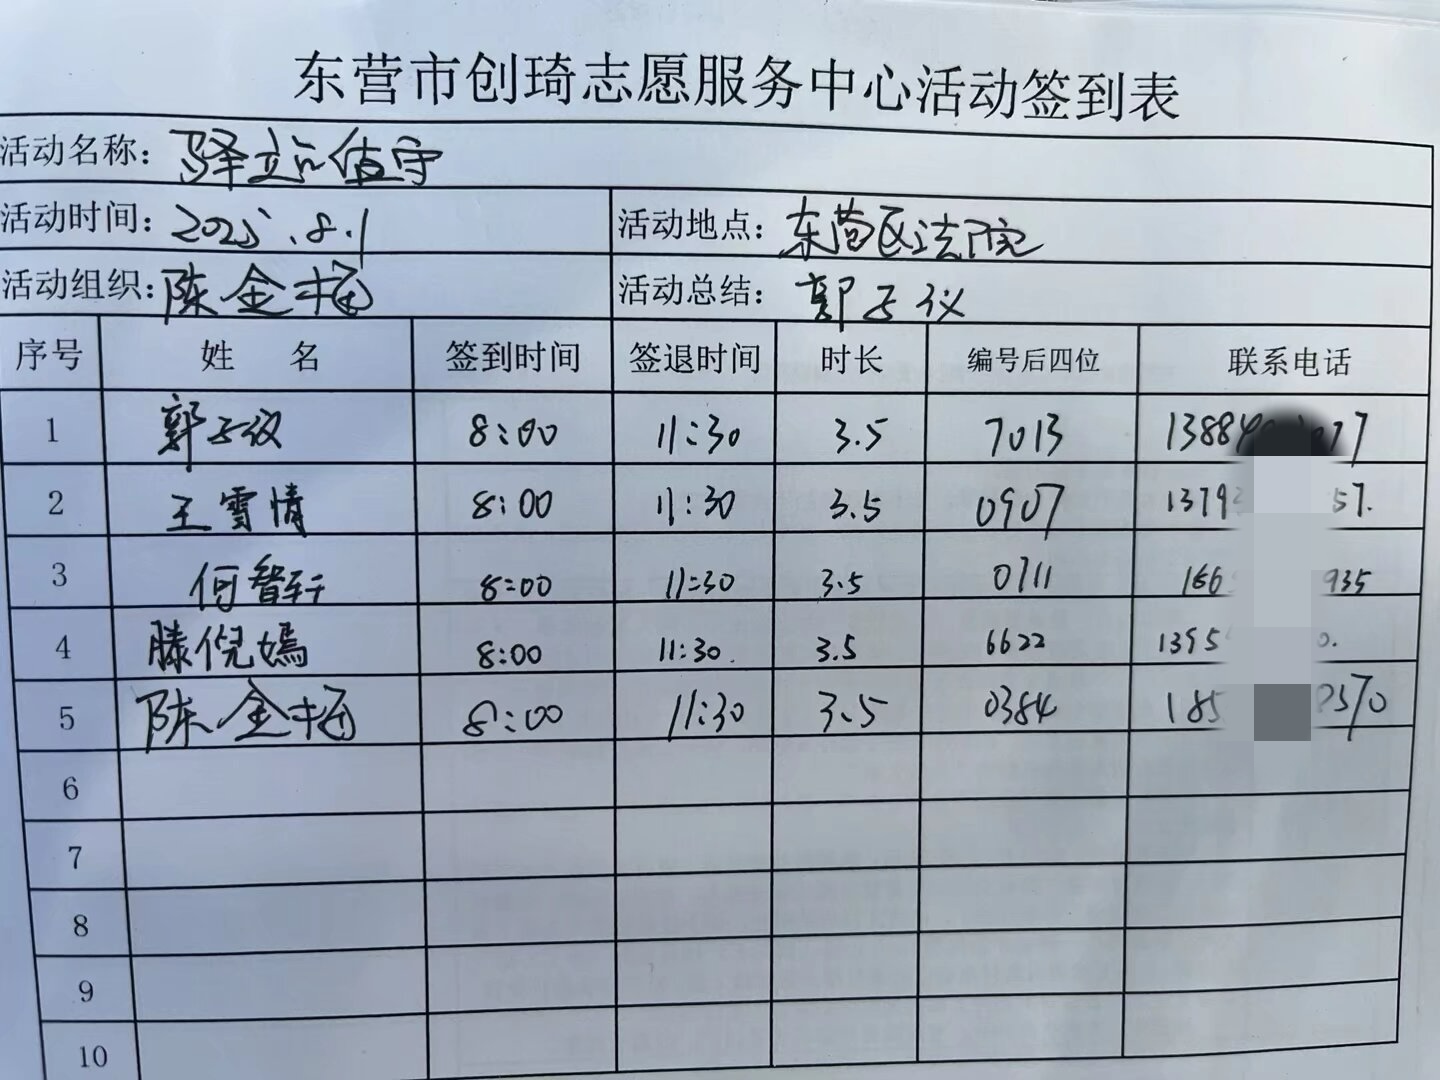 东营市创琦志愿服务中心活动签到表
活动名称：驿站值守
活动时间：2025.8.1 活动地点：东营区法院
活动组织：陈金 活动总结：郭子仪
序号 姓名 签到时间 签退时间 时长 编号后四位 联系电话
1 郭子仪 8:00 11:30 3.5 7013 1388 77
2 王雪情 8:00 11:30 3.5 0907 1379 57.
3 何智轩 8:00 11:30 3.5 0711 166 935
4 滕倪嫣 8:00 11:30. 3.5 6622 1395 0.
5 陈金 8:00 11:30 3.5 0384 185 8570
6
7
8
9
10